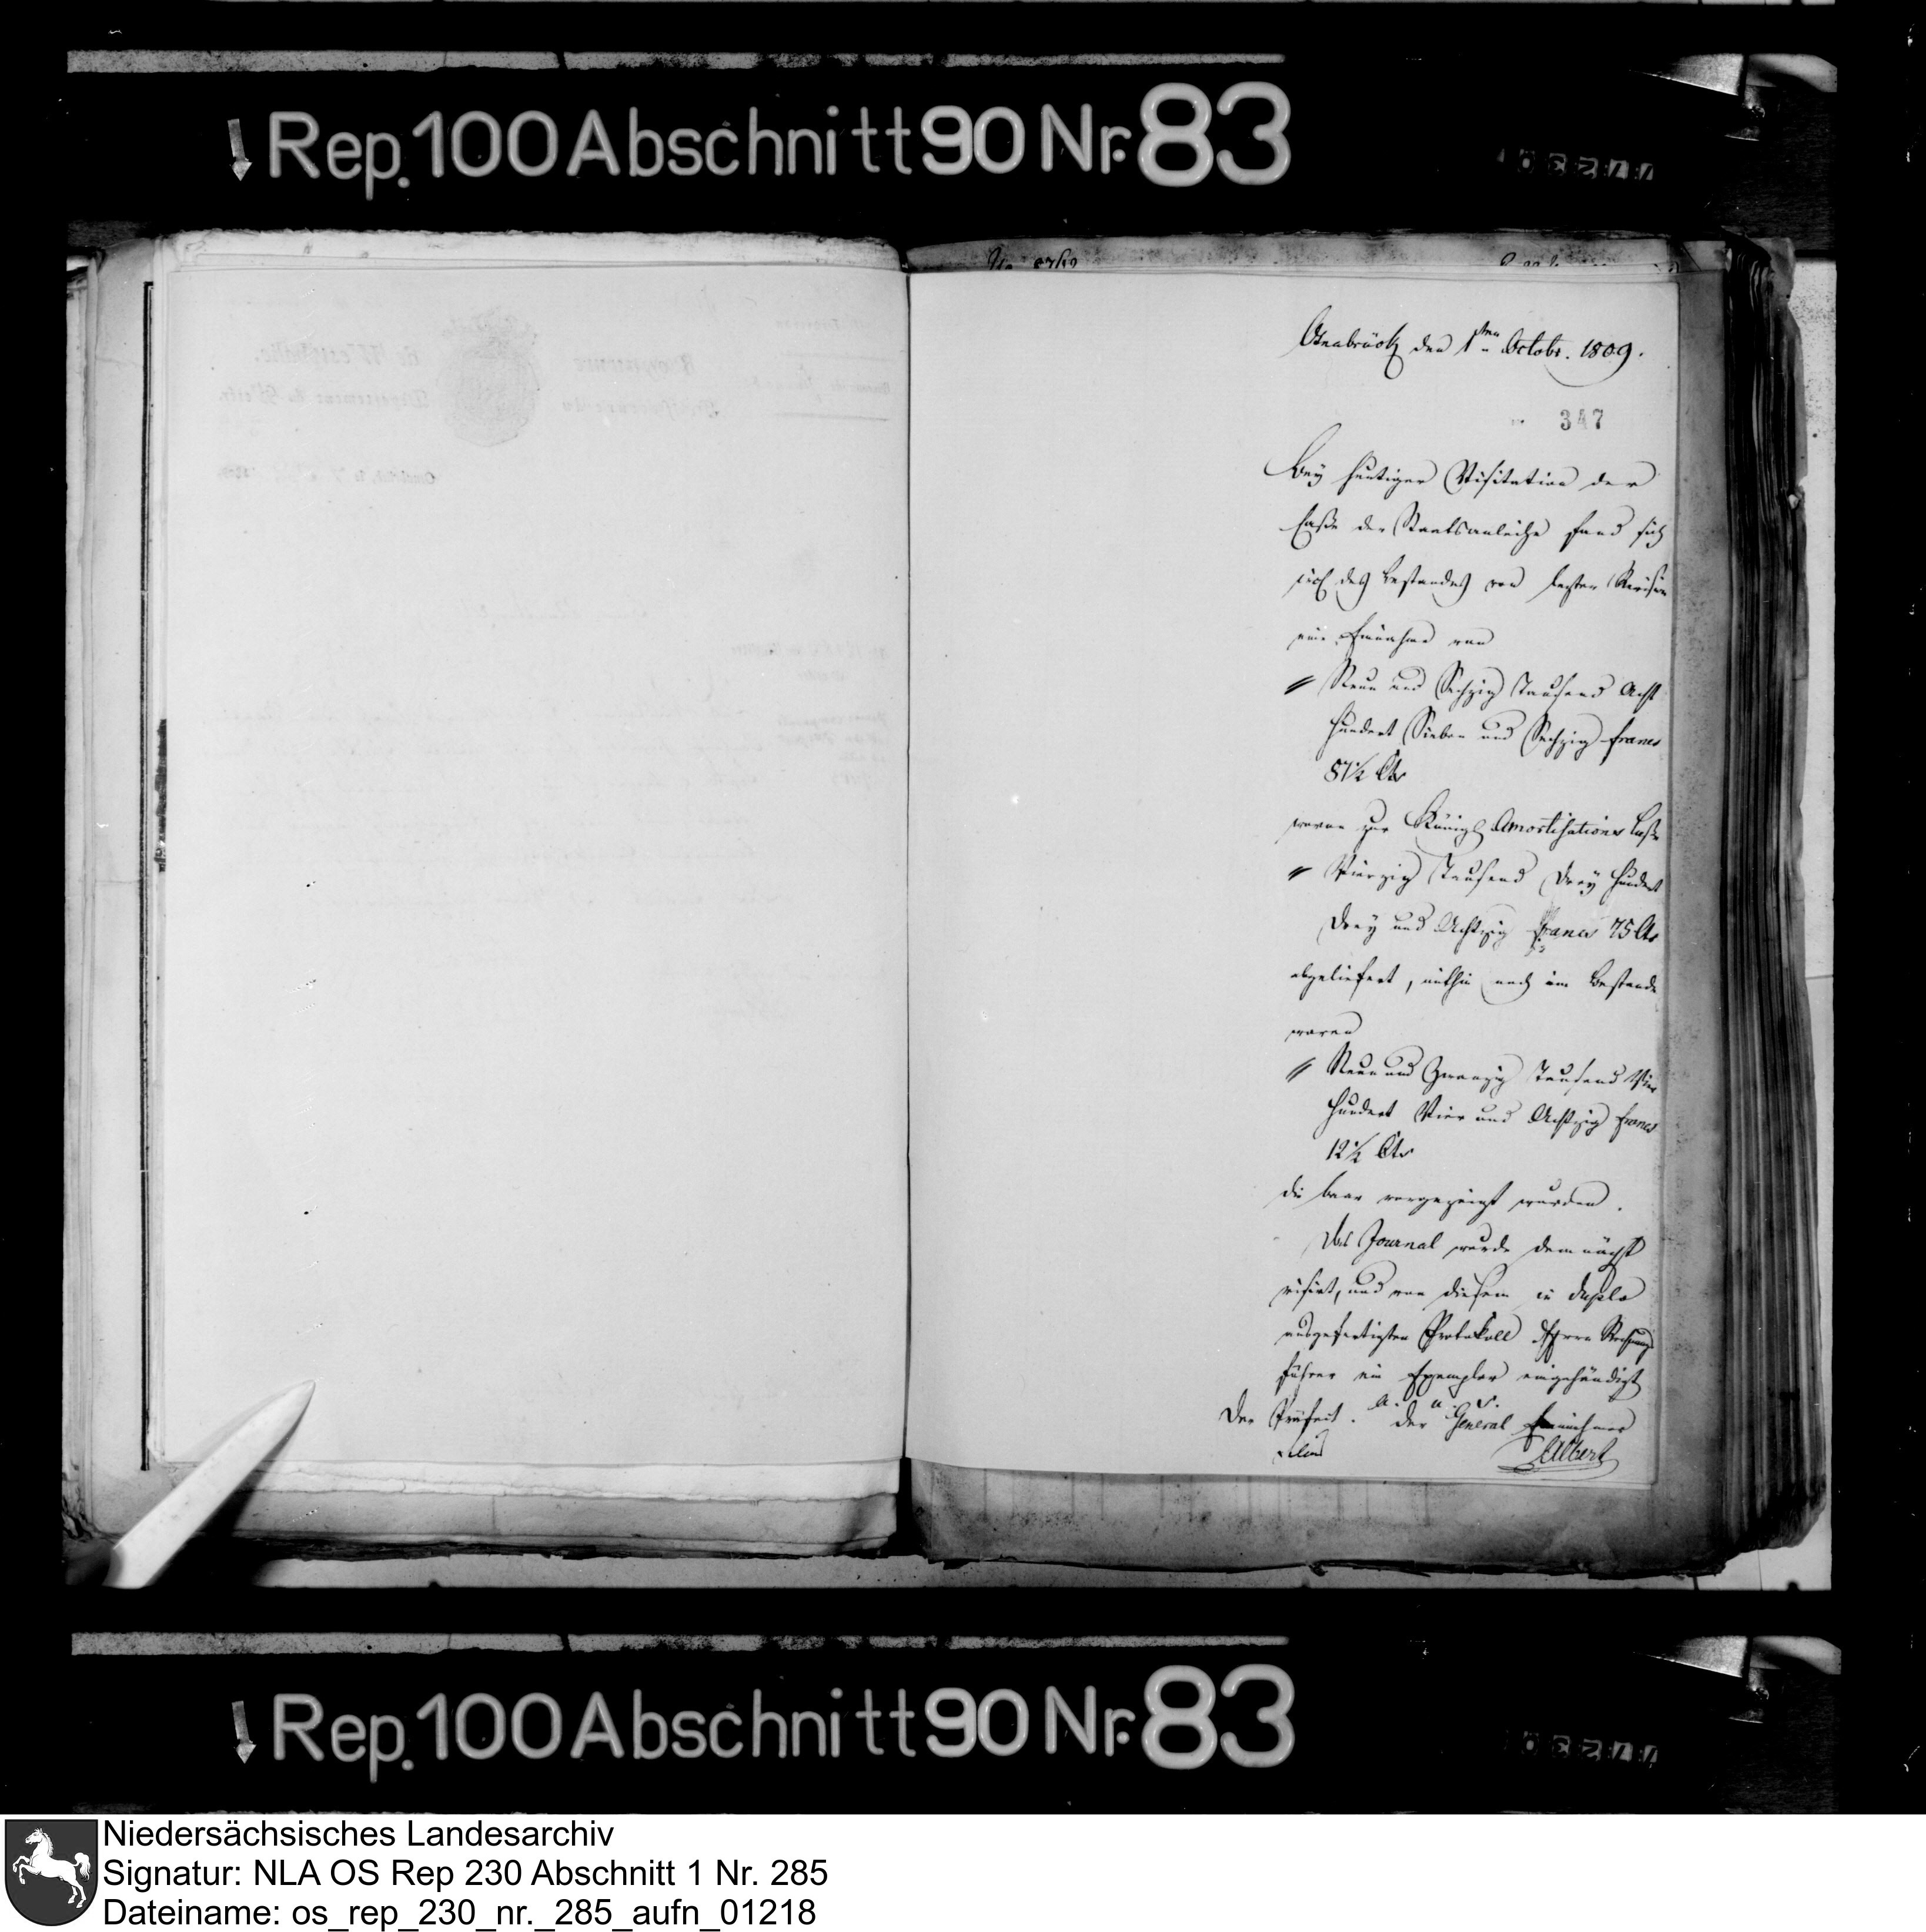 Rep. 100 Abschnitt 90 Nr. 83
Osnabrück den 1sten Octobr. 1809.
347
Bey heutiger Visitation der
Casse der Staatsanleihe fand sich
incl des Bestandes von letzter Revision
eine Einnahme von
" Neun und Sechzig Tausend Acht
hundert Sieben und Sechzig francs
87½ Cts
wovon zur Königl Amortisations Casse
" Vierzig Tausend Drey hundert
Drey und Achtzig francs 75 Cts
abgeliefert, mithin noch im Bestande
waren
" Neun und Zwanzig Tausend Vier
hundert Vier und Achtzig francs
12½ Cts
die baar vorgezeigt wurden.
Das Journal wurde demnächst
visirt, und von diesem in duplo
ausgefertigten Protokoll Herrn Rechnungs
führer ein Exemplar eingehändigt
a. u. s.
Der Präfect. Der General Einnehmer
Albert
Rep. 100 Abschnitt 90 Nr. 83
Niedersächsisches Landesarchiv
Signatur: NLA OS Rep 230 Abschnitt 1 Nr. 285
Dateiname: os_rep_230_nr._285_aufn_01218